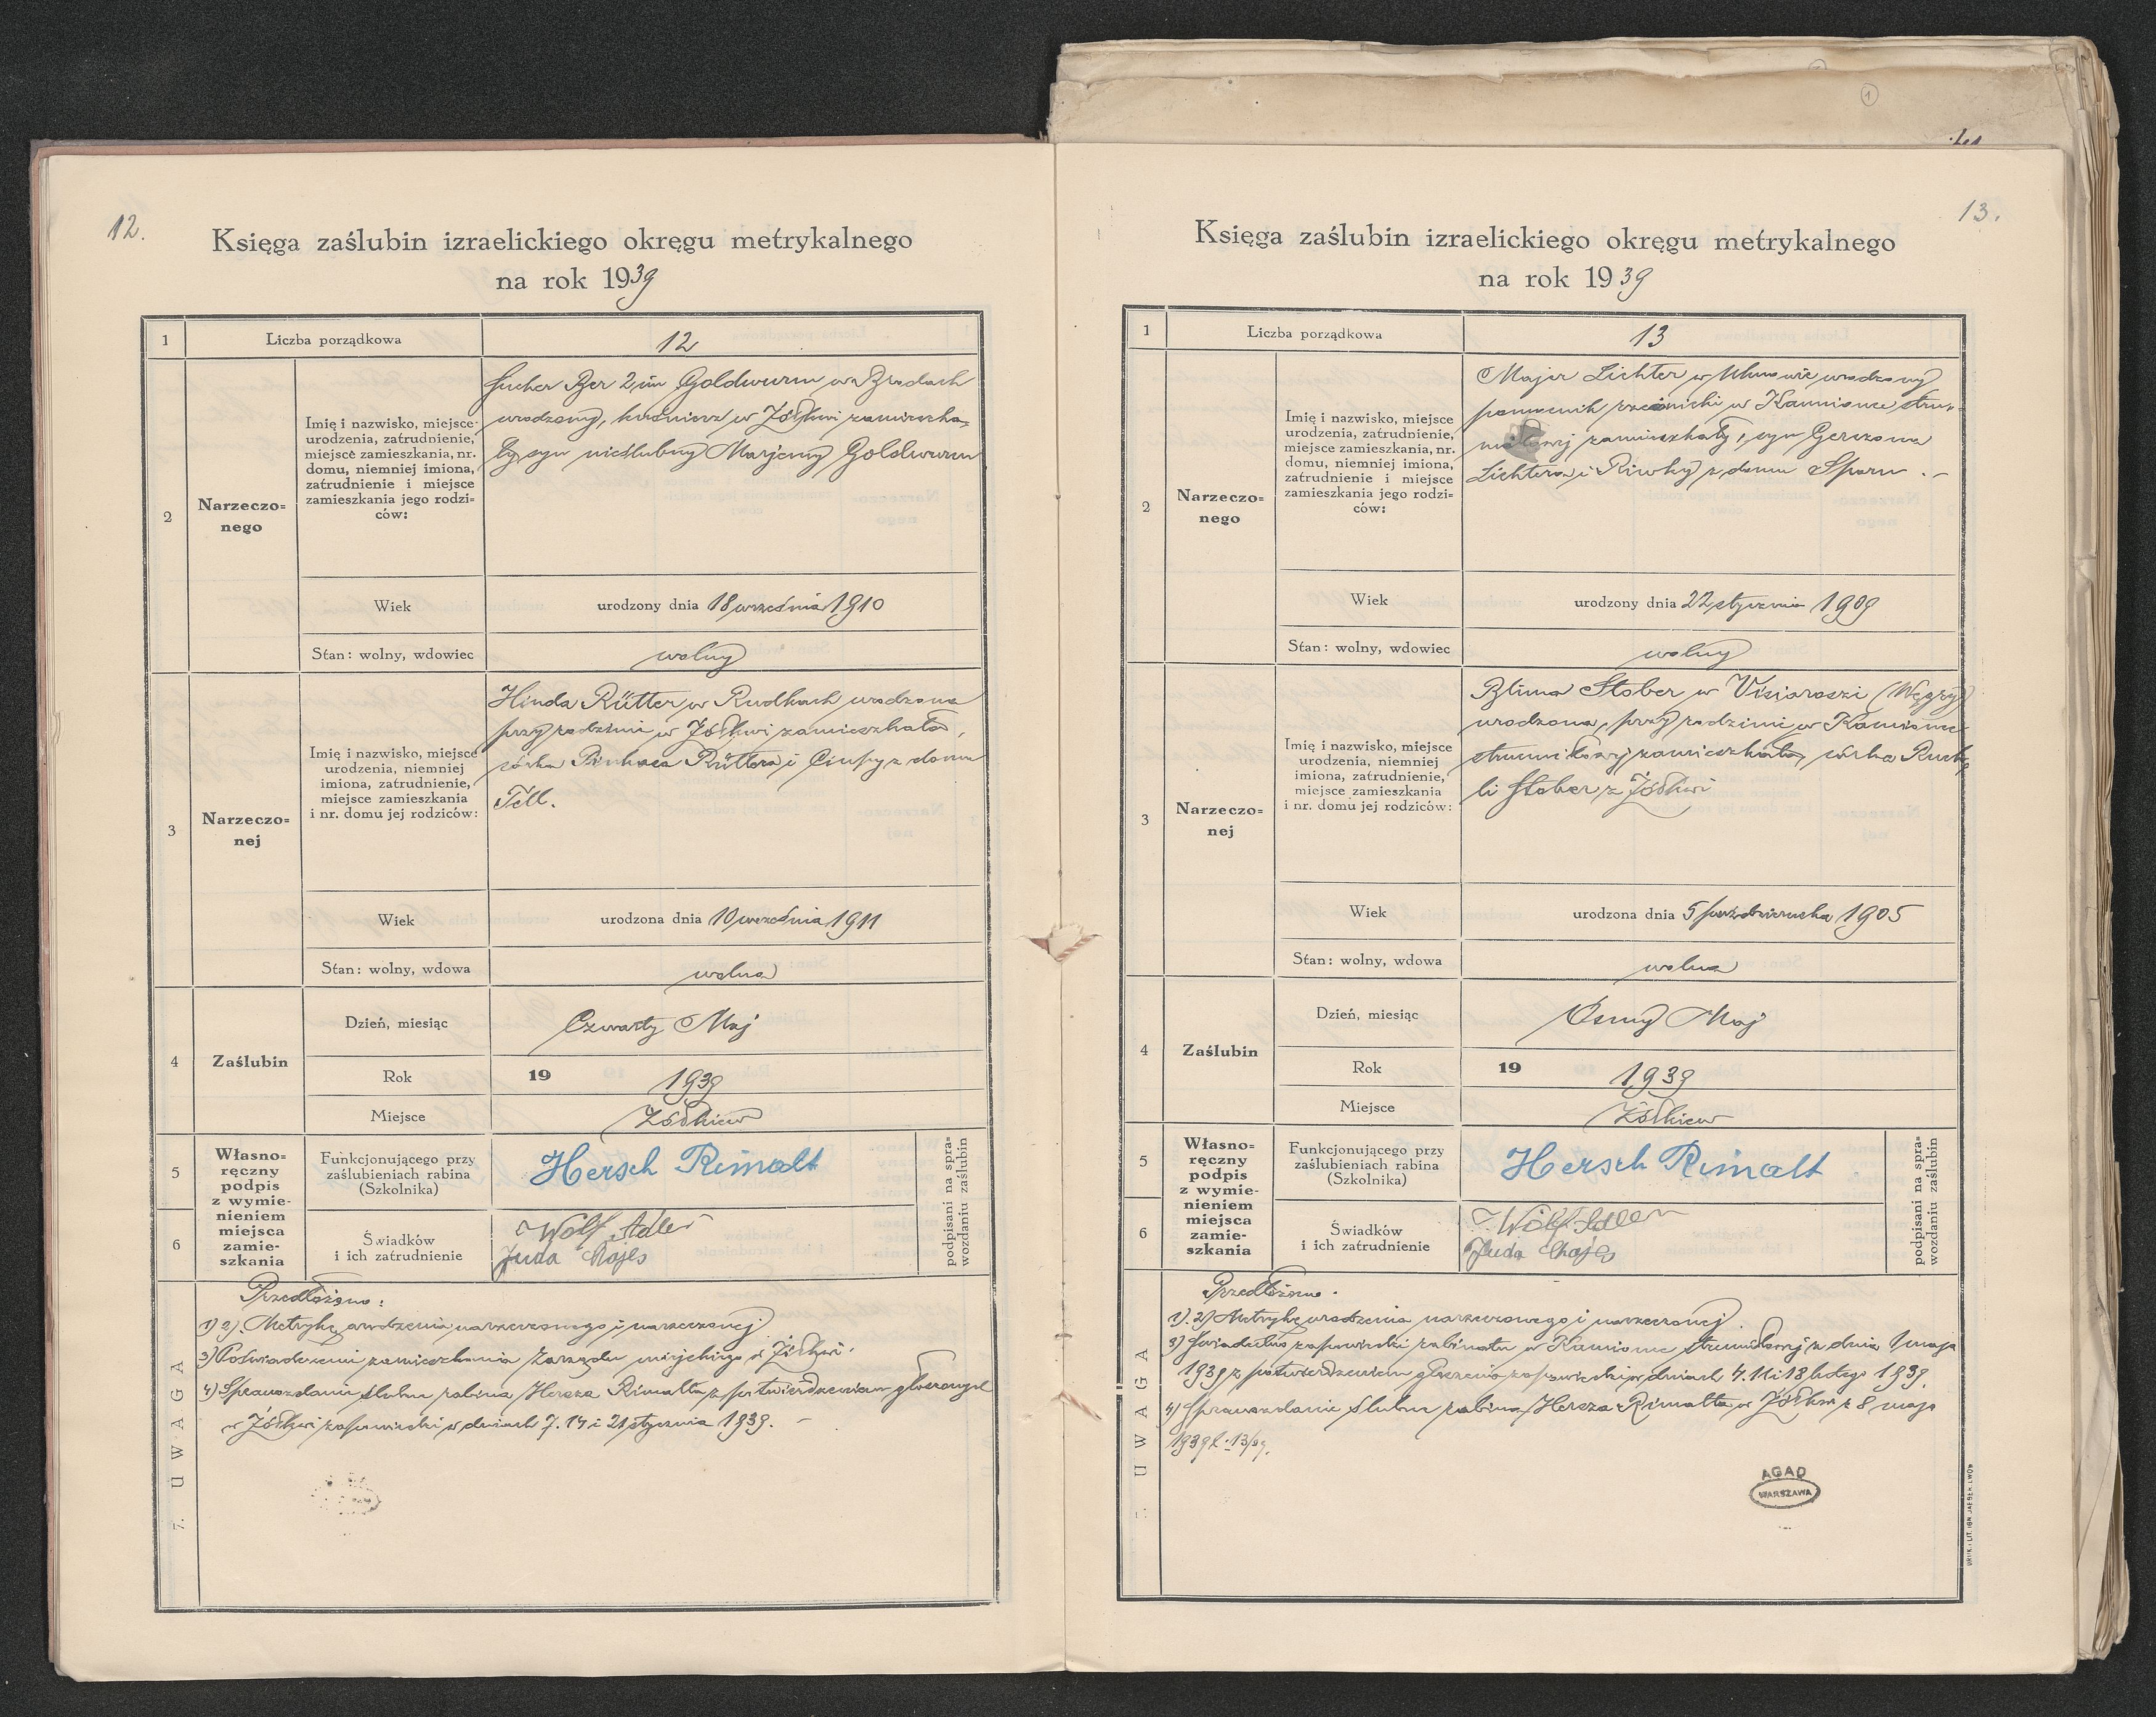 12.
Księga zaślubin izraelickiego okręgu metrykalnego
na rok 1939
1 Liczba porządkowa 12
2 Narzeczo=
nego
Imię i nazwisko, miejsce
urodzenia, zatrudnienie,
miejsce zamieszkania, nr.
domu, niemniej imiona,
zatrudnienie i miejsce
zamieszkania jego rodzi-
ców:
Sucher Ber 2 im Goldwurm w Brodach
urodzony, kuśnierz w Żółkwi zamieszka-
ły, syn nieślubny Marjemy Goldwurm
Wiek urodzony dnia 18 września 1910
Stan: wolny, wdowiec wolny
3 Narzeczo=
nej
Imię i nazwisko, miejsce
urodzenia, niemniej
imiona, zatrudnienie,
miejsce zamieszkania
i nr. domu jej rodziców:
Hinda Rütter w Rudkach urodzona
przy rodzinie w Żółkwi zamieszkała,
córka Pinkasa Rüttera i z domu
Tell.
Wiek urodzona dnia 10 września 1911
Stan: wolny, wdowa wolna
4 Zaślubin
Dzień, miesiąc Czwarty Maj
Rok 19 1939
Miejsce Żółkiew
5
6
Własno=
ręczny
podpis
z wymie-
nieniem
miejsca
zamie-
szkania
Funkcjonującego przy
zaślubieniach rabina
(Szkolnika)
Hersch Rimalt
Świadków
i ich zatrudnienie
Wolf Adler
Juda Chajes
podpisani na spra-
wozdaniu zaślubin
7. UWAGA
Przedłożono:
1) 2). Metrykę urodzenia narzeczonego i narzeczonej
3) Poświadczenie zamieszkania Zarządu miejskiego w Żółkwi.
4) Sprawozdanie ślubu rabina Hersza Rimalta z potwierdzeniem głoszonych
w Żółkwi zapowiedzi w dniach 7. 14 i 21 stycznia 1939. –
13.
Księga zaślubin izraelickiego okręgu metrykalnego
na rok 1939
1 Liczba porządkowa 13
2 Narzeczo=
nego
Imię i nazwisko, miejsce
urodzenia, zatrudnienie,
miejsce zamieszkania, nr.
domu, niemniej imiona,
zatrudnienie i miejsce
zamieszkania jego rodzi-
ców:
Majer Lichter w Uhnowie urodzony
pomocnik rzeźnicki w Kamionce stru-
miłowej zamieszkały, syn Gerszona
Lichtera i Riwky z domu Sparn . –
Wiek urodzony dnia 22 stycznia 1909
Stan: wolny, wdowiec wolny
3 Narzeczo=
nej
Imię i nazwisko, miejsce
urodzenia, niemniej
imiona, zatrudnienie,
miejsce zamieszkania
i nr. domu jej rodziców:
Blima Stober w (Węgry)
urodzona, przy rodzinie w Kamionce
strumiłowej zamieszkała, córka Ruch
li Stober z Żółkwi
Wiek urodzona dnia 5 października 1905
Stan: wolny, wdowa wolna
4 Zaślubin
Dzień, miesiąc Ósmy Maj
Rok 19 1939
Miejsce Żółkiew
5
6
Własno=
ręczny
podpis
z wymie-
nieniem
miejsca
zamie-
szkania
Funkcjonującego przy
zaślubieniach rabina
(Szkolnika)
Hersch Rimalt
Świadków
i ich zatrudnienie
Wolf Adler
Juda Chajes
podpisani na spra-
wozdaniu zaślubin
7. UWAGA
Przedłożono.
1). 2) Metrykę urodzenia narzeczonego i narzeczonej.
3) Świadectwo zapowiedzi rabinatu w Kamionce strumiłowej z dnia 1 maja
1939 z potwierdzeniem głoszenia zapowiedzi w dniach 4. 11 i 18 lutego 1939.
4) Sprawozdanie ślubu rabina Hersza Rimalta w Żółkwi z 8 maja
1939 l. 13/39.
AGAD
WARSZAWA
DRUK. i LIT. IGN. JAEGER, LWÓW